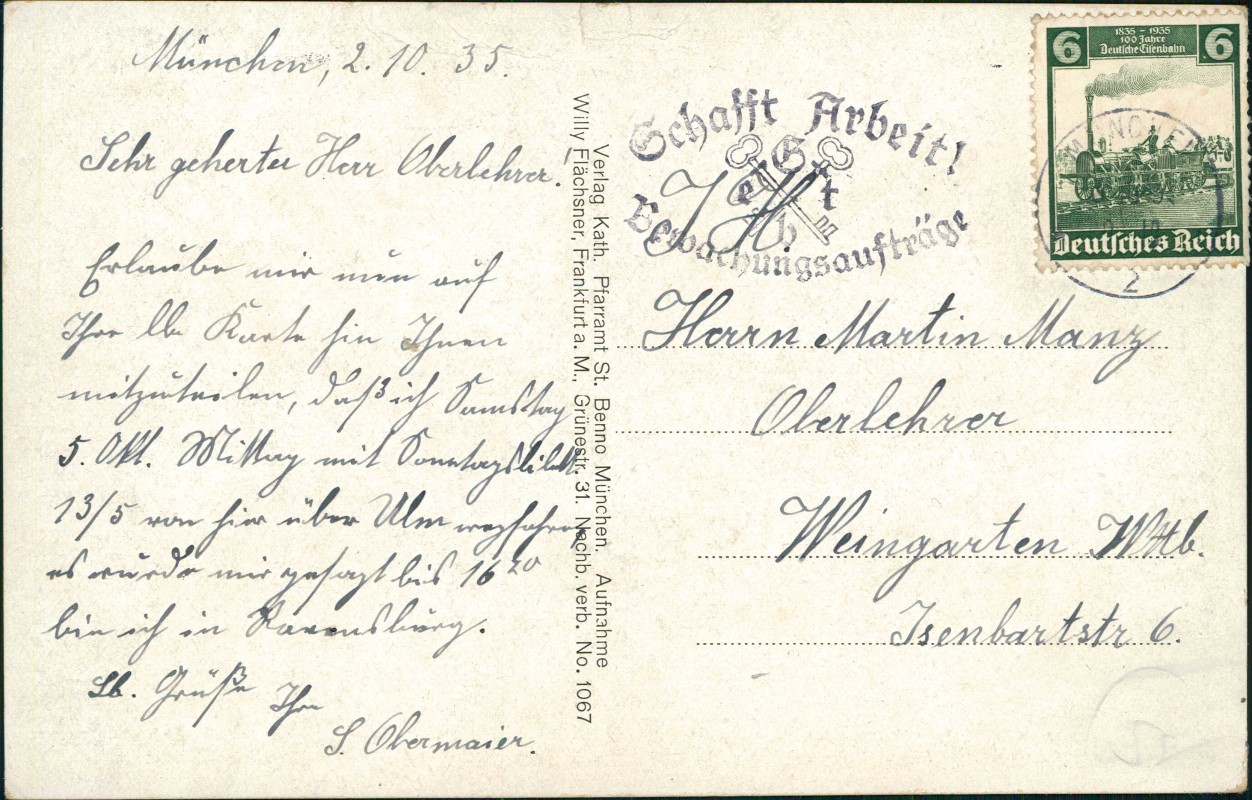 München, 2. 10. 35.
Sehr geherter Herr Oberlehrer.
Erlaube mir nun auf
Ihre lb. Karte hin Ihnen
mitzuteilen, daß ich Samstag
5. Okt. Mittag mit Sonntagsbillet
13/5 von hier über Ulm wegfahre
es wurde mir gesagt bis 16 20
bin ich in Ravensburg.
Lb. Grüße Ihr
S. Obermaier.
Verlag Kath. Pfarramt St. Benno München. Aufnahme
Willy Flächsner, Frankfurt a. M., Grünestr. 31. Nachb. verb. No. 1067
Schafft Arbeit!
Gebt
Bewachungsaufträge
6 1835 - 1935 6
100 Jahre
Deutsche Eisenbahn
Deutsches Reich
MÜNCHEN
2
Herrn Martin Manz
Oberlehrer
Weingarten Wttb.
Isenbartstr 6.